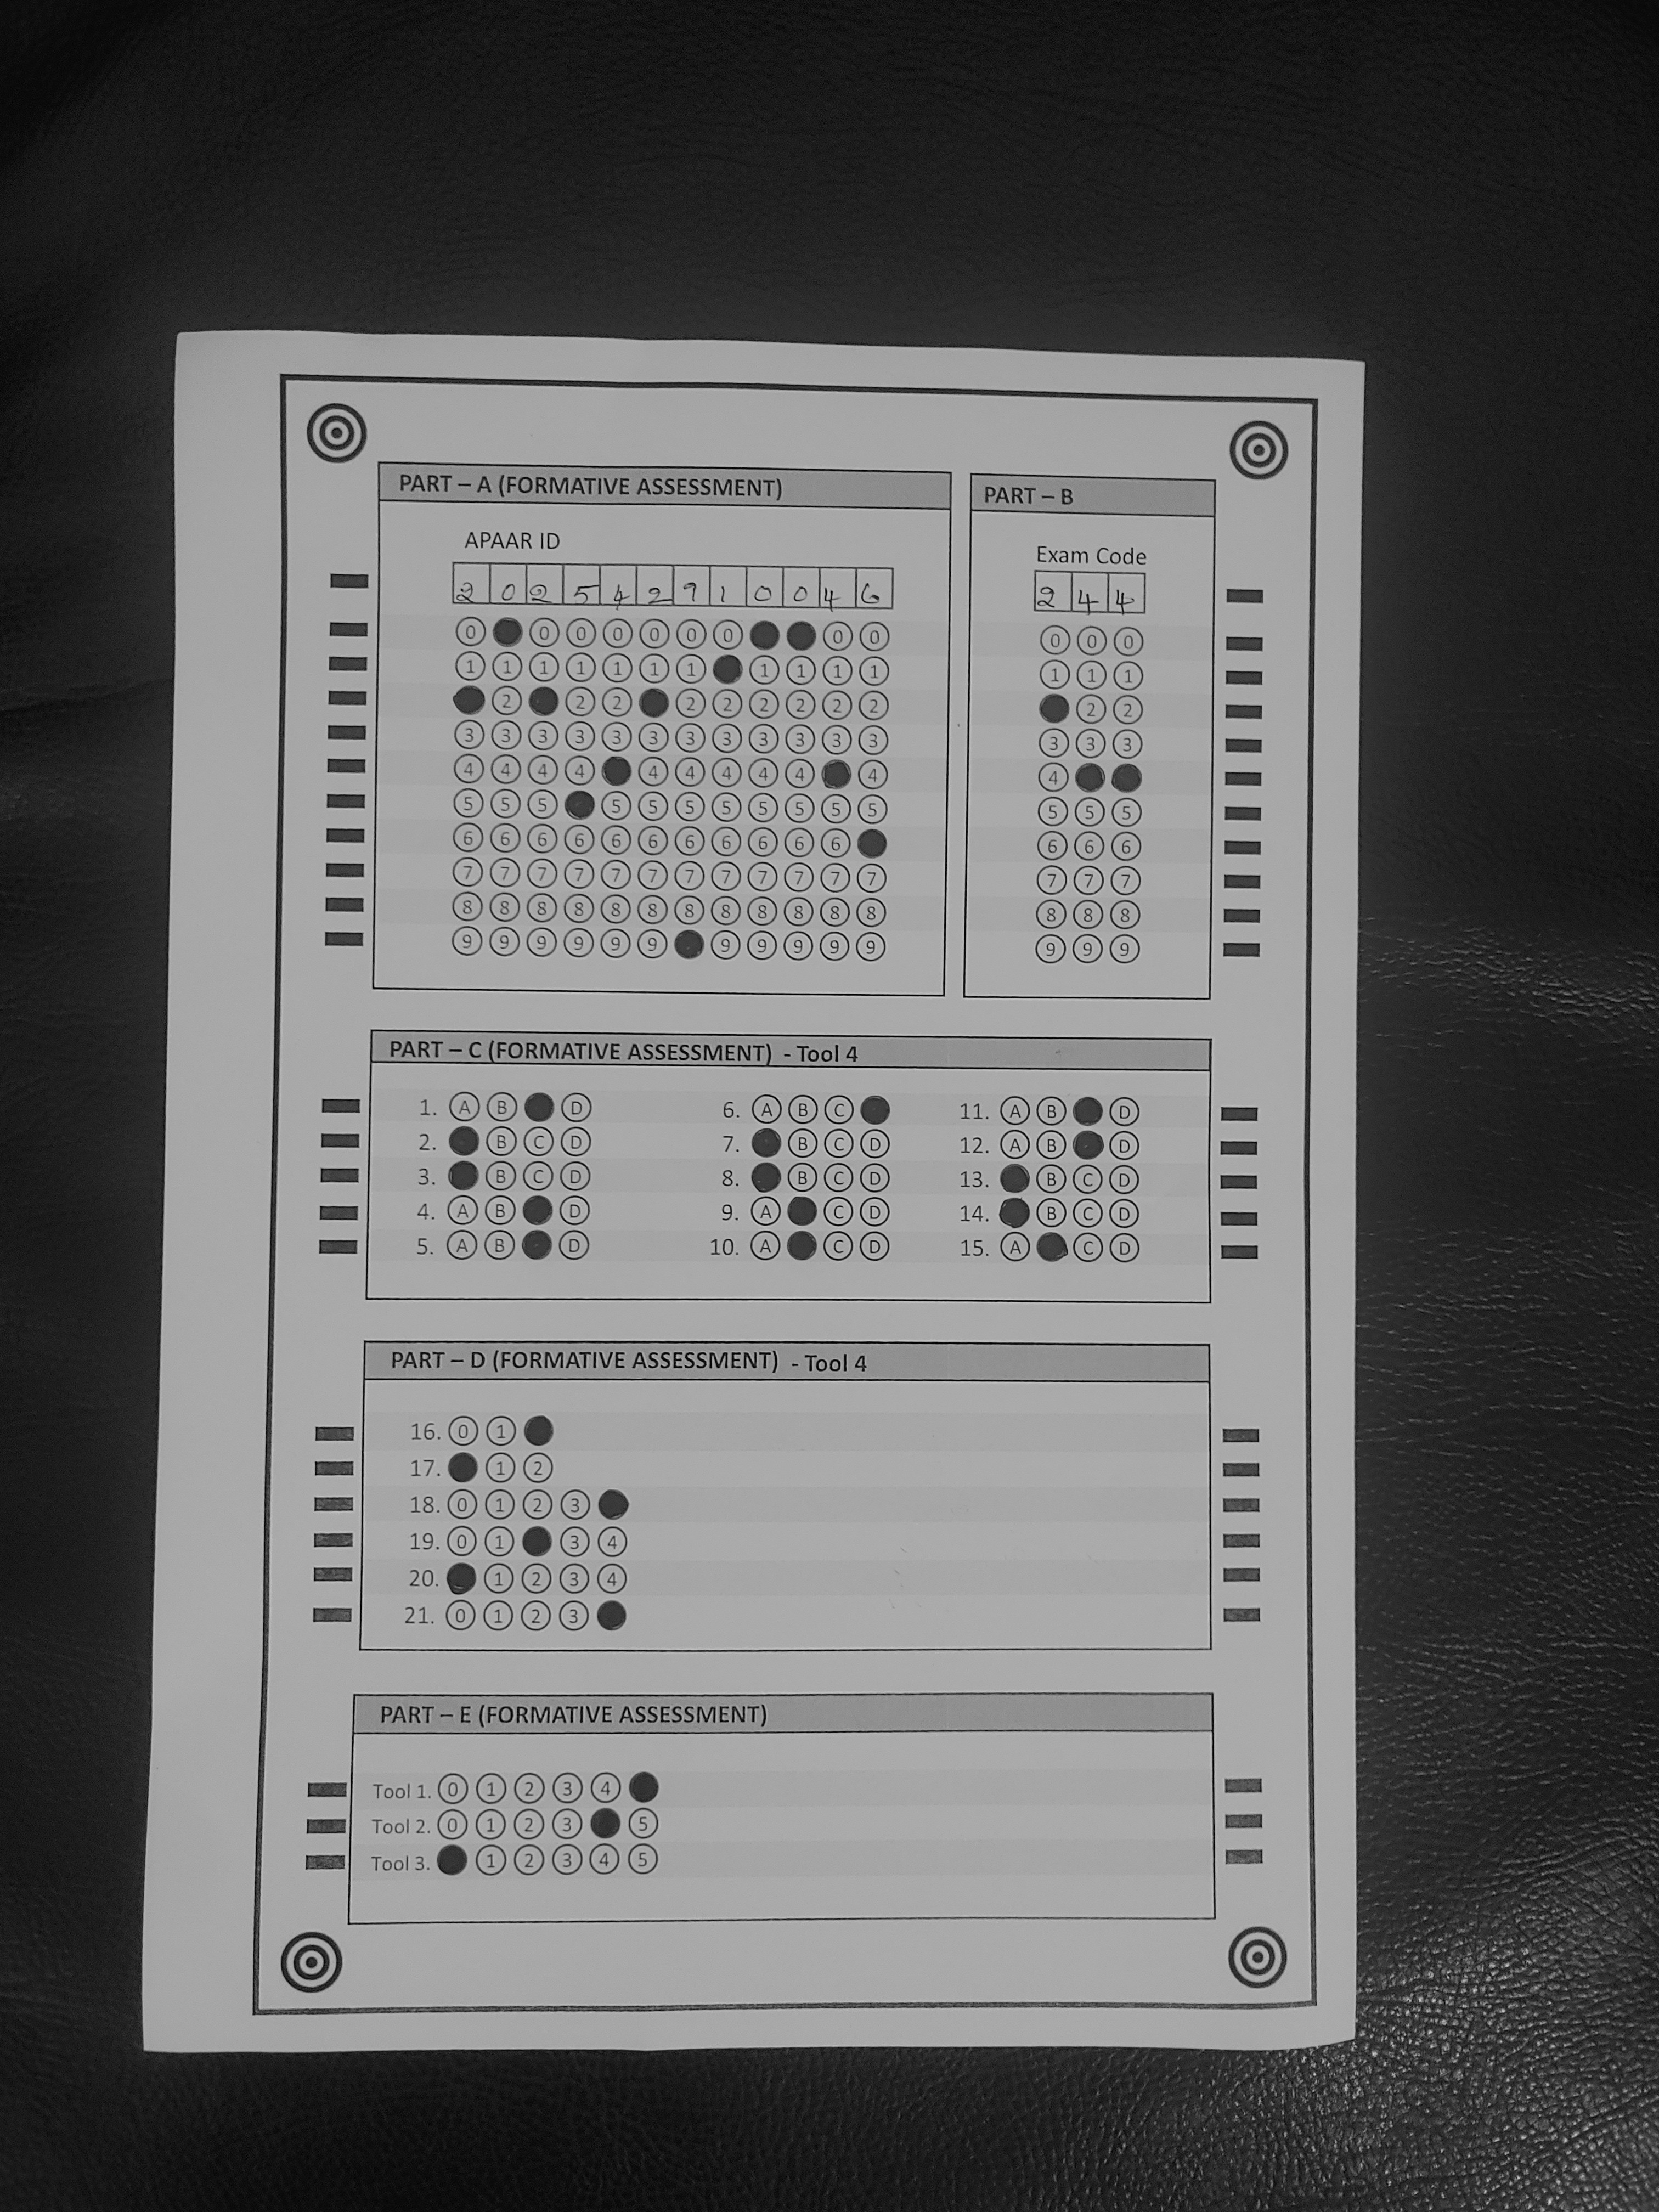 PART – A (FORMATIVE ASSESSMENT)
APAAR ID
2 0 2 5 4 2 9 1 0 0 4 6
0 0 0 0 0 0 0 0 0
1 1 1 1 1 1 1 1 1 1 1
2 2 2 2 2 2 2 2 2
3 3 3 3 3 3 3 3 3 3 3 3
4 4 4 4 4 4 4 4 4 4
5 5 5 5 5 5 5 5 5 5 5
6 6 6 6 6 6 6 6 6 6 6
7 7 7 7 7 7 7 7 7 7 7 7
8 8 8 8 8 8 8 8 8 8 8 8
9 9 9 9 9 9 9 9 9 9 9
PART – B
Exam Code
2 4 4
0 0 0
1 1 1
2 2
3 3 3
4
5 5 5
6 6 6
7 7 7
8 8 8
9 9 9
PART – C (FORMATIVE ASSESSMENT) - Tool 4
1. A B D
2. B C D
3. B C D
4. A B D
5. A B D
6. A B C
7. B C D
8. B C D
9. A C D
10. A C D
11. A B D
12. A B D
13. B C D
14. B C D
15. A C D
PART – D (FORMATIVE ASSESSMENT) - Tool 4
16. 0 1
17. 1 2
18. 0 1 2 3
19. 0 1 3 4
20. 1 2 3 4
21. 0 1 2 3
PART – E (FORMATIVE ASSESSMENT)
Tool 1. 0 1 2 3 4
Tool 2. 0 1 2 3 5
Tool 3. 1 2 3 4 5